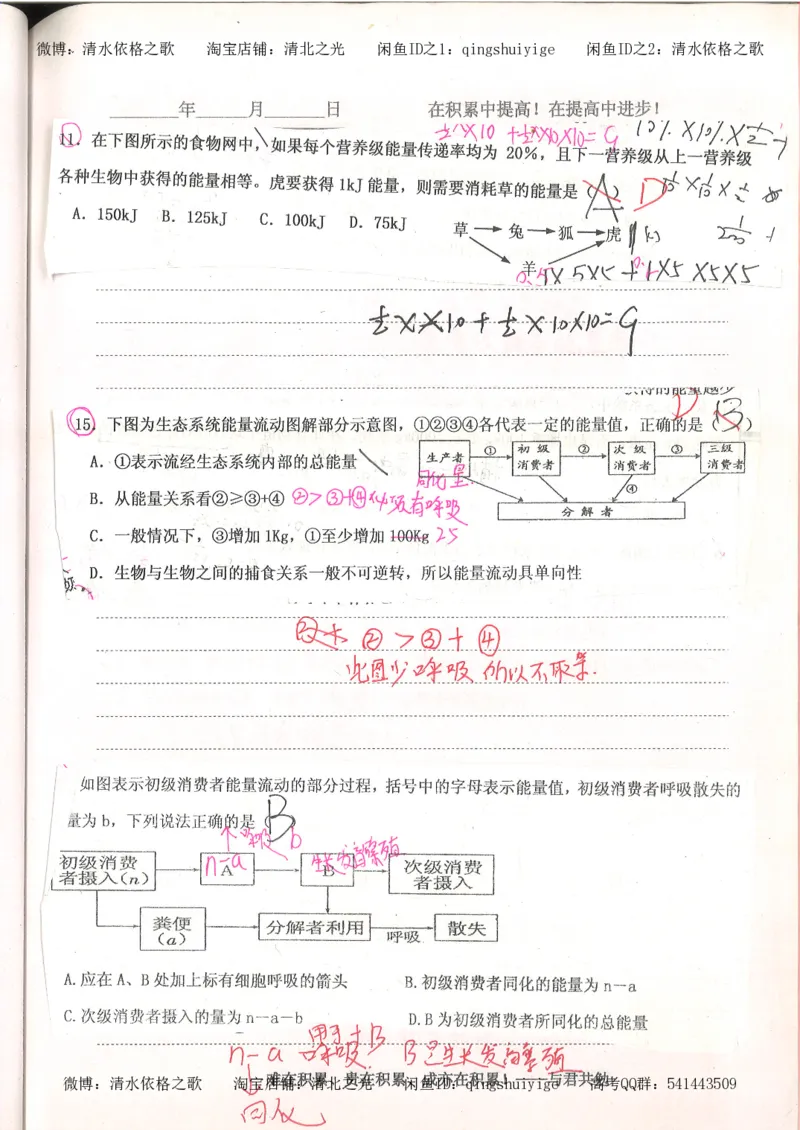 微博:清水依格之歌 淘宝店铺:清北之光 闲鱼ID之1:qingshuiyige 闲鱼ID之2:清水依格之歌
______年_____月_____日 在积累中提高!在提高中进步!
½×10 +½×10×10=G 10%×10%×½
11. 在下图所示的食物网中,如果每个营养级能量传递率均为 20%,且下一营养级从上一营养级
各种生物中获得的能量相等。虎要获得 1kJ 能量,则需要消耗草的能量是( A ) D
A. 150kJ B. 125kJ C. 100kJ D. 75kJ
草 兔 狐 虎
羊
0.5×5×5+ ×5×5×5
+½×10×10=G
15. 下图为生态系统能量流动图解部分示意图,①②③④各代表一定的能量值,正确的是( B ) D
生产者 ① 初级消费者 ② 次级消费者 ③ 三级消费者
④
分解者
A. ①表示流经生态系统内部的总能量
同化量
B. 从能量关系看②≥③+④ ②>③+④ 还有呼吸
C. 一般情况下,③增加 1Kg,①至少增加 100Kg 25
D. 生物与生物之间的捕食关系一般不可逆转,所以能量流动具单向性
②>③+④
此图少呼吸 所以不取等.
如图表示初级消费者能量流动的部分过程,括号中的字母表示能量值,初级消费者呼吸散失的
量为 b,下列说法正确的是( B
呼吸 b
n-a 生长发育繁殖
初级消费者摄入(n) A B 次级消费者摄入
粪便(a) 分解者利用 呼吸 散失
A.应在 A、B 处加上标有细胞呼吸的箭头 B.初级消费者同化的能量为 n—a
C.次级消费者摄入的量为 n—a—b D.B 为初级消费者所同化的总能量
n-a 呼吸 用于+B B是生长发育繁殖
微博:清水依格之歌 淘宝店铺:清北之光 闲鱼ID:qingshuiyige 高考QQ群:541443509
难在积累,贵在积累,成亦在积累!——与君共勉
同化